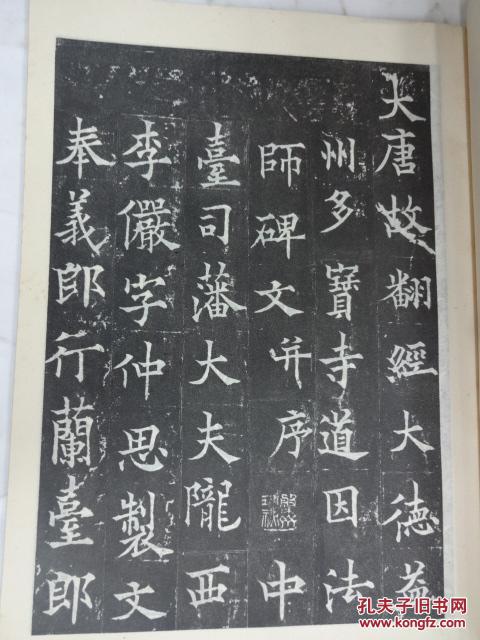 大唐故翻經大德益
州多寶寺道因法
師碑文并序 中
臺司藩大夫隴西
李儼字仲思製文
奉義郎行蘭臺郎
孔夫子旧书网